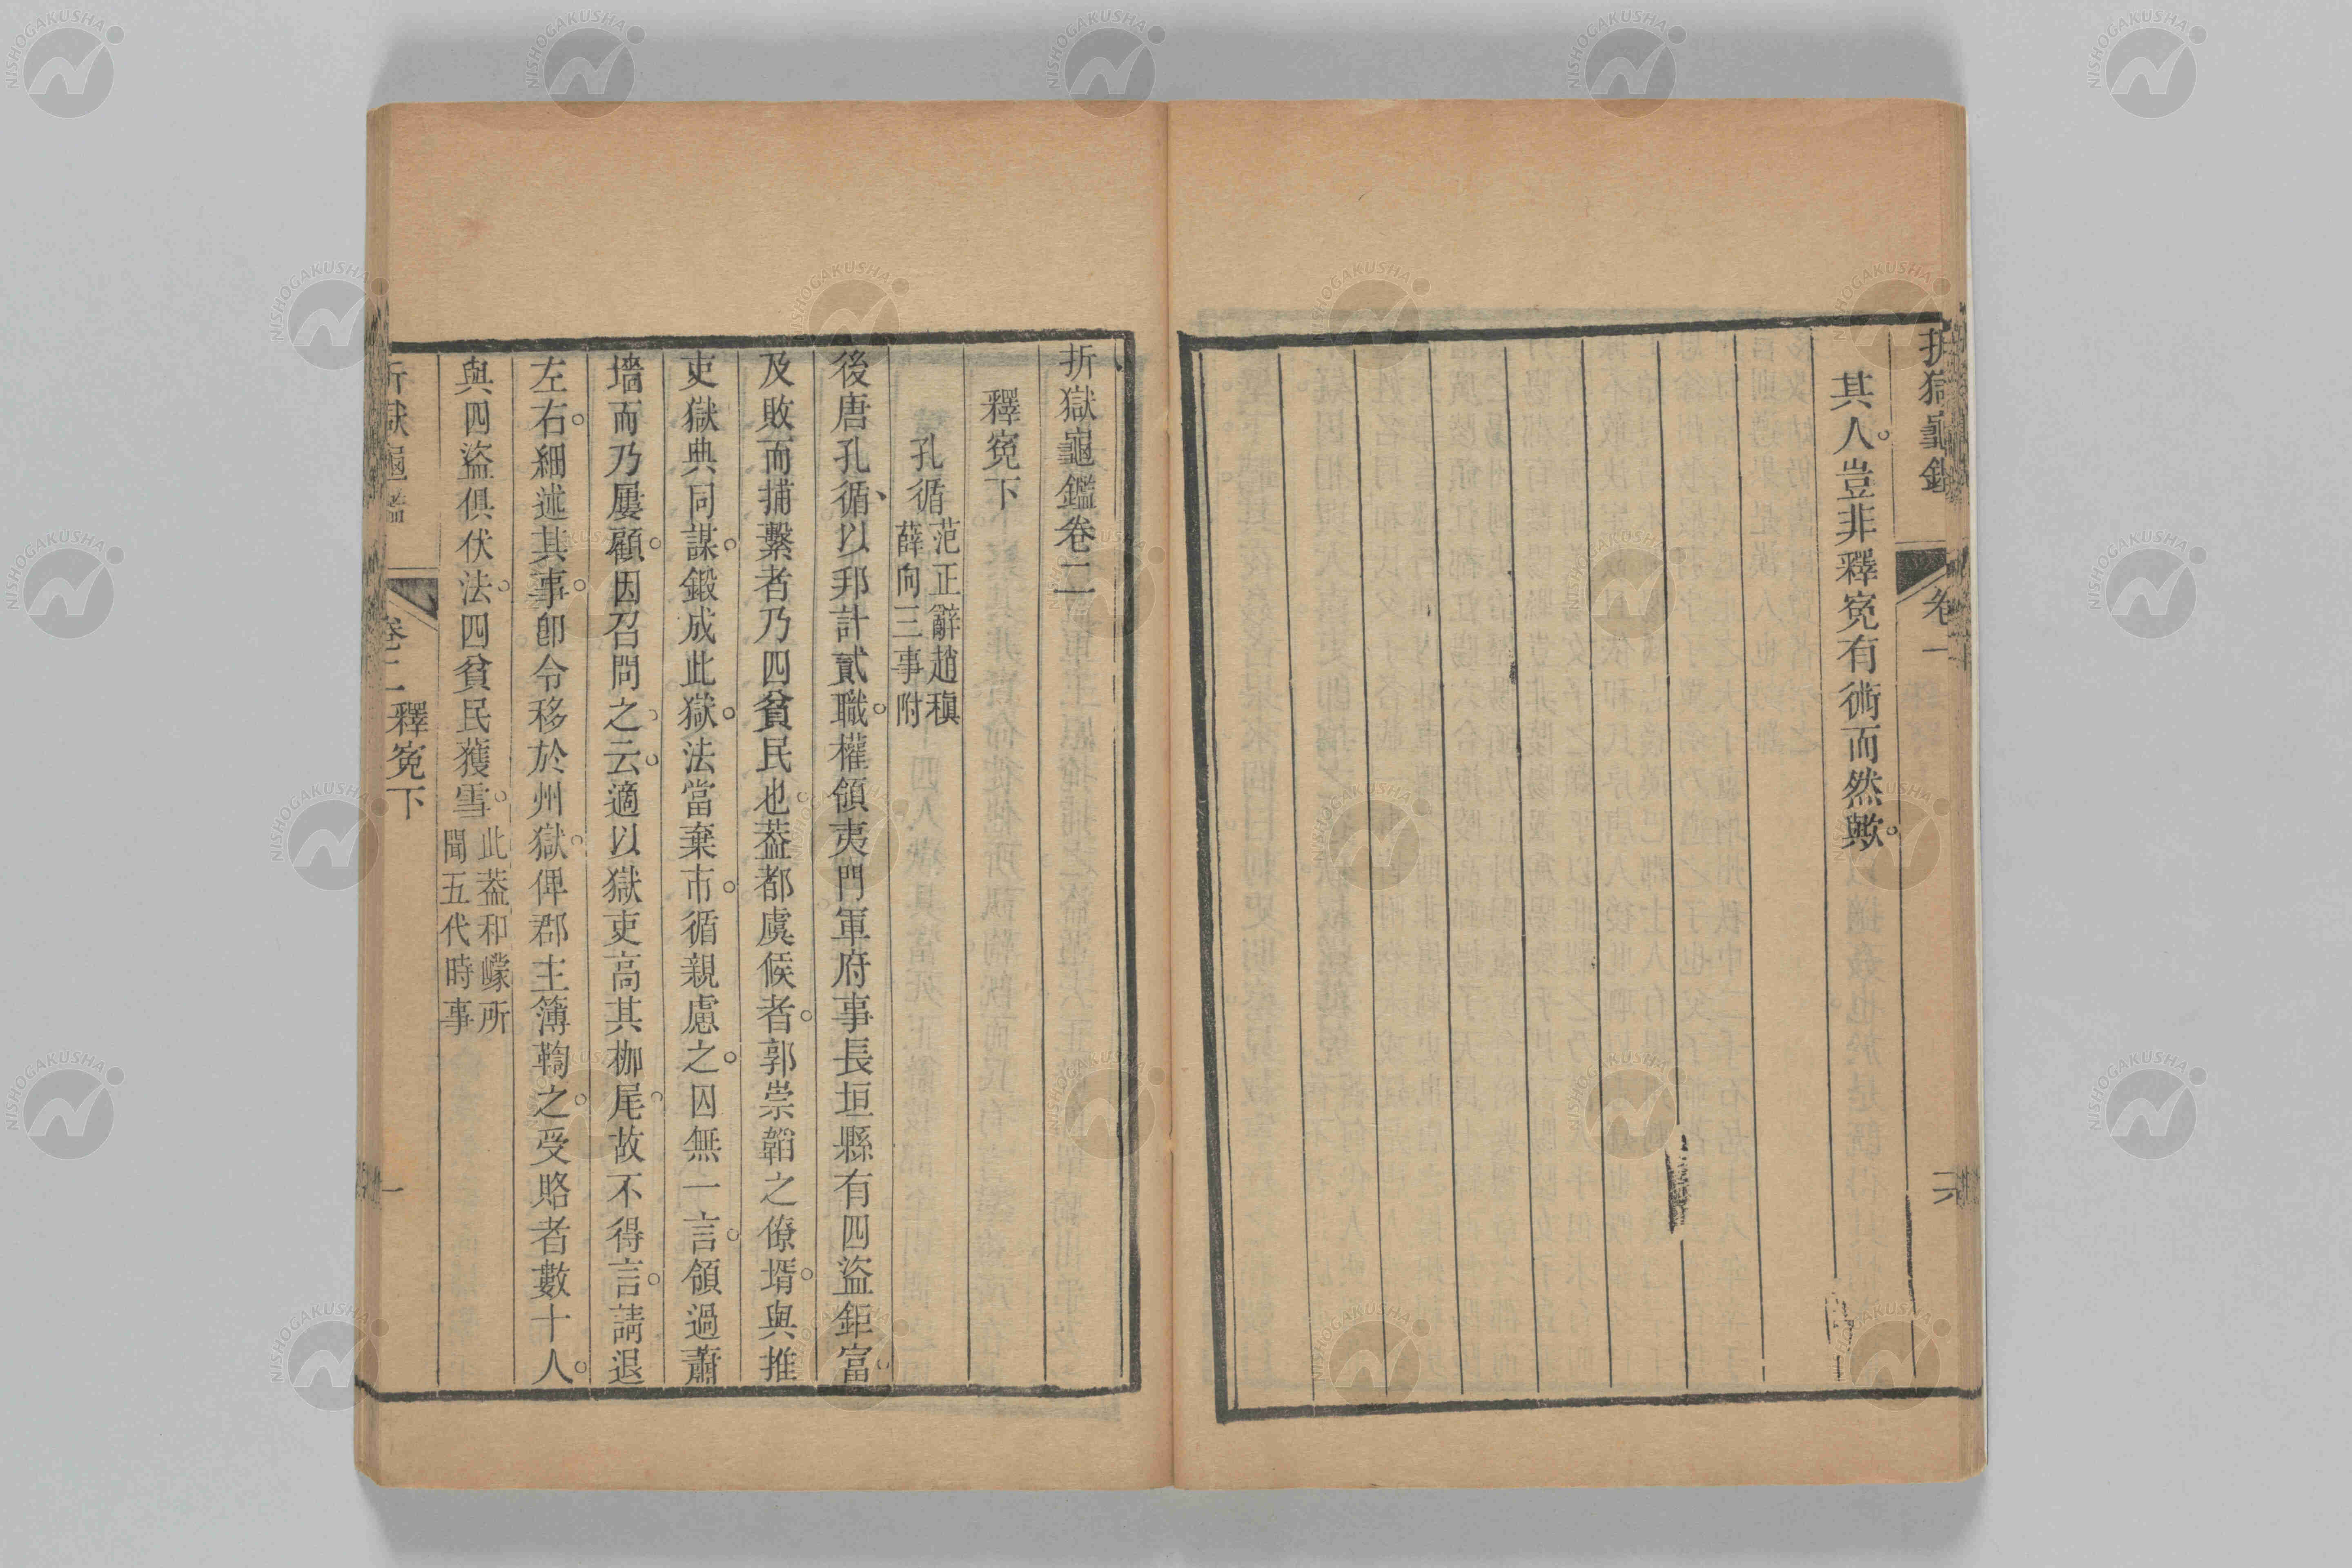 折獄龜鑑
卷一
六
其人豈非釋寃有術而然歟
折獄龜鑑卷二
釋寃下
孔循
范正辭趙稹
薛向三事附
後唐孔循以邦計貳職權領夷門軍府事長垣縣有四盜鉅富
及敗而捕繫者乃四貧民也葢都虞候者郭崇韜之僚壻與推
吏獄典同謀鍛成此獄法當棄市循親慮之囚無一言領過蕭
墻而乃屢顧因召問之云適以獄吏高其枷尾故不得言請退
左右細述其事卽令移於州獄俾郡主簿鞫之受賂者數十人
與四盜俱伏法四貧民獲雪
此葢和㠓所
聞五代時事
折獄龜鑑
卷二
釋寃下
一
NISHOGAKUSHA